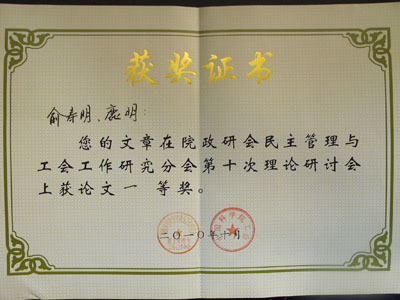 获奖证书
俞寿明、庞明:
您的文章在院政研会民主管理与
工会工作研究分会第十次理论研讨会
上获论文一 等奖。
二〇一〇年十月